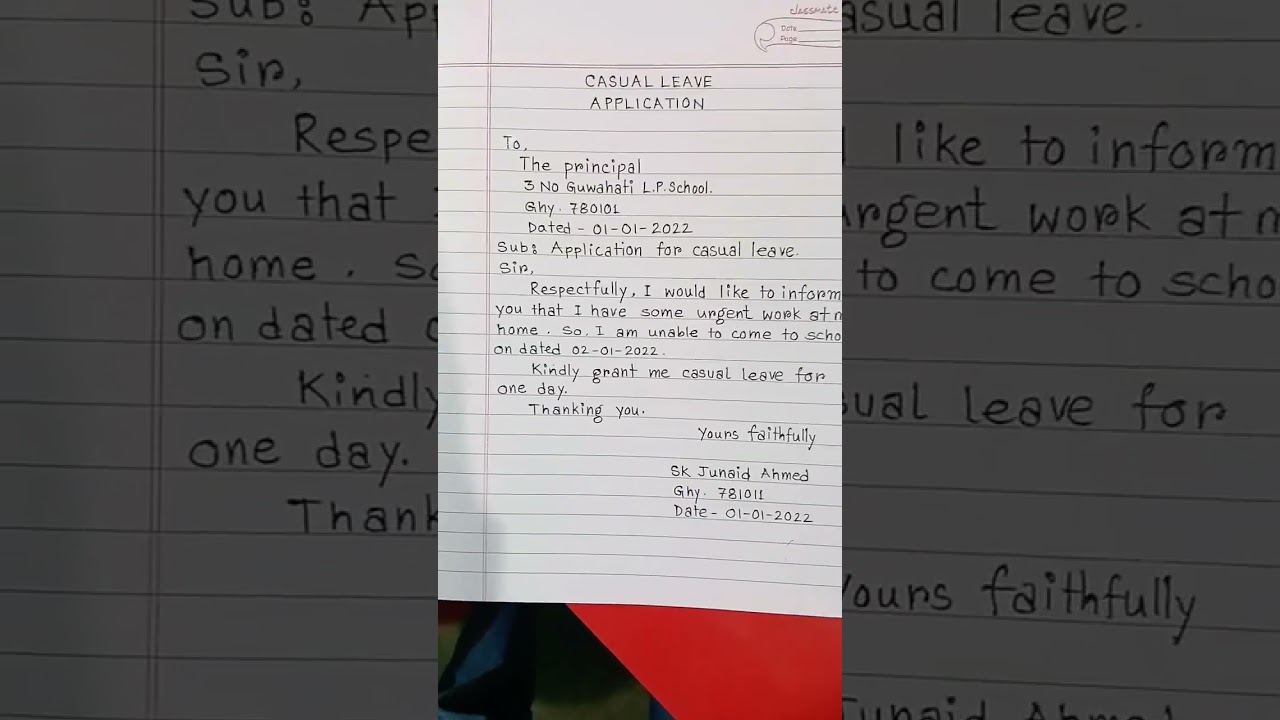 classmate
Date
Page
CASUAL LEAVE
APPLICATION
To,
The principal
3 No Guwahati L.P. School.
Ghy. 780101
Dated - 01-01-2022
Sub: Application for casual leave.
Sir,
Respectfully, I would like to inform
you that I have some urgent work at m
home. So, I am unable to come to scho
on dated 02-01-2022.
Kindly grant me casual leave for
one day.
Thanking you.
Yours faithfully
SK Junaid Ahmed
Ghy. 781011
Date - 01-01-2022